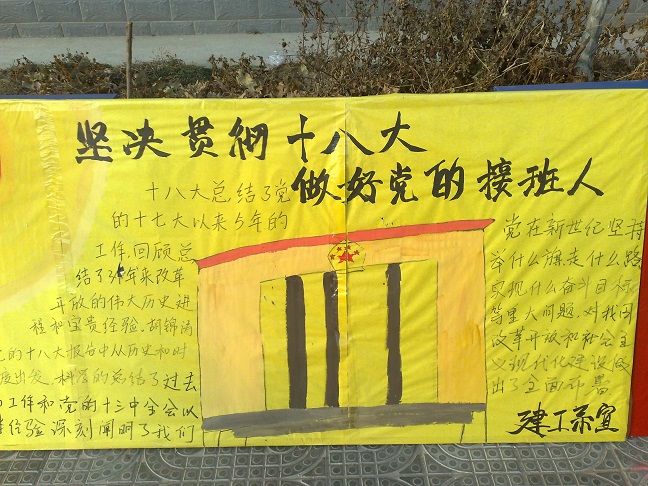 坚决贯彻十八大
做好党的接班人
十八大总结了党
的十七大以来5年的
工作,回顾总
结了  年来改革
开放的伟大历史进
程和宝贵经验.胡锦涛
的十八大报告中从历史和时
度出发,科学的总结了过去
工作和党的十三中全会以
经验深刻阐明了我们
党在新世纪坚持
举什么旗走什么路
实现什么奋斗目标
等重大问题,对我国
改革开放和社会主
义现代化建设做
出了全面部署
建工系宣